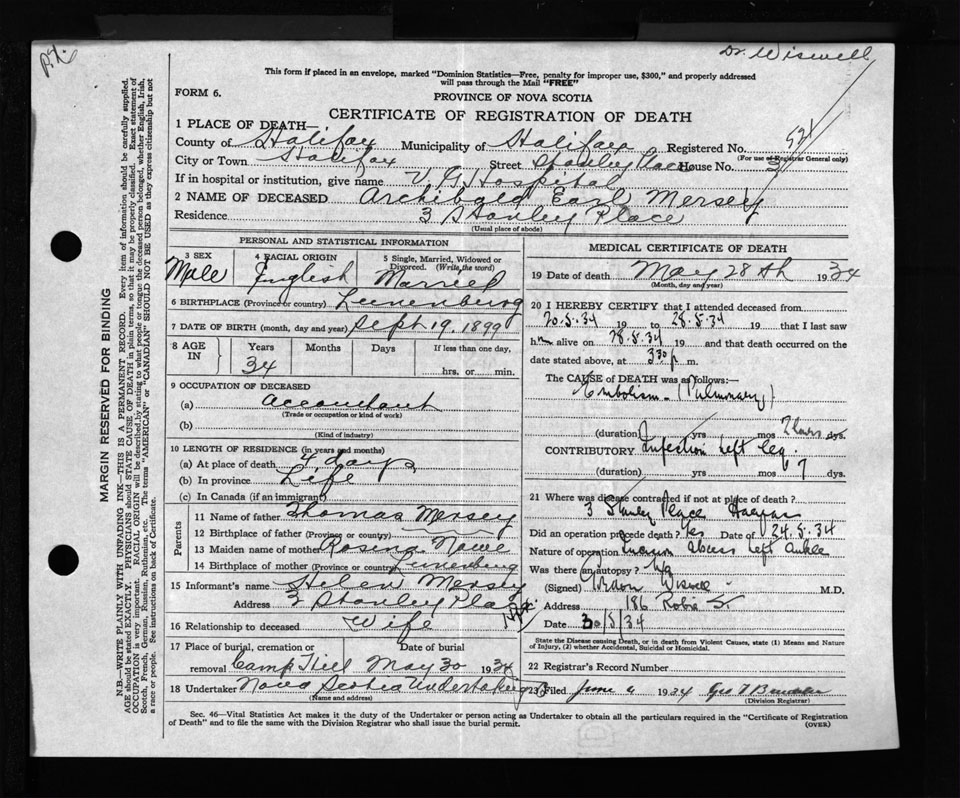 P.X.
Dr. Wiswell
This form if placed in an envelope, marked "Dominion Statistics—Free, penalty for improper use, $300," and properly addressed
will pass through the Mail "FREE"
FORM 6.
PROVINCE OF NOVA SCOTIA
CERTIFICATE OF REGISTRATION OF DEATH
1 PLACE OF DEATH—
County of Halifax Municipality of Halifax Registered No. 521
(For use of Registrar General only)
City or Town Halifax Street Stanley Place House No. 3
If in hospital or institution, give name V G Hospital
2 NAME OF DECEASED Archibald Earl Mersey
Residence 3 Stanley Place
(Usual place of abode)
PERSONAL AND STATISTICAL INFORMATION
3 SEX Male
4 RACIAL ORIGIN English
5 Single, Married, Widowed or Divorced. (Write the word) Married
6 BIRTHPLACE (Province or country) Lunenburg
7 DATE OF BIRTH (month, day and year) Sept 19, 1899
8 AGE IN Years 34 Months Days If less than one day, hrs. or min.
9 OCCUPATION OF DECEASED
(a) Accountant
(Trade or occupation or kind of work)
(b)
(Kind of industry)
10 LENGTH OF RESIDENCE (in years and months)
(a) At place of death days
(b) In province Life
(c) In Canada (if an immigrant)
Parents
11 Name of father Thomas Mersey
12 Birthplace of father (Province or country)
13 Maiden name of mother Rosina Nowe
14 Birthplace of mother (Province or country) Lunenburg
15 Informant's name Helen Mersey
Address 3 Stanley Place Hfx.
16 Relationship to deceased Wife
17 Place of burial, cremation or removal Camp Hill Date of burial May 30 1934
18 Undertaker Nova Scotia Undertaking
(Name and address)
MEDICAL CERTIFICATE OF DEATH
19 Date of death May 28th 1934
(Month, day and year)
20 I HEREBY CERTIFY that I attended deceased from
20-5-34 19 to 28-5-34 19 that I last saw
him alive on 28-5-34 19 and that death occurred on the
date stated above, at 3:30 p. m.
The CAUSE of DEATH was as follows:—
Embolism - (Pulmonary)
(duration) yrs mos 2 hours dys.
CONTRIBUTORY Infection left leg.
(duration) yrs mos 7 dys.
21 Where was disease contracted if not at place of death?
3 Stanley Place Halifax
Did an operation precede death? Yes Date of 24-5-34
Nature of operation Incision abscess left ankle
Was there an autopsy? No
(Signed) Gordon Wiswell M.D.
Address 186 Robie St.
Date 30/5/34
State the Disease causing Death, or in death from Violent Causes, state (1) Means and Nature
of Injury, (2) whether Accidental, Suicidal or Homicidal.
22 Registrar's Record Number
23 Filed June 1934 Geo
(Division Registrar)
Sec. 46—Vital Statistics Act makes it the duty of the Undertaker or person acting as Undertaker to obtain all the particulars required in the "Certificate of Registration
of Death" and to file the same with the Division Registrar who shall issue the burial permit.
(OVER)
MARGIN RESERVED FOR BINDING
N.B.—WRITE PLAINLY WITH UNFADING INK—THIS IS A PERMANENT RECORD. Every item of information should be carefully supplied.
AGE should be stated EXACTLY. PHYSICIANS should STATE CAUSE OF DEATH in plain terms, so that it may be properly classified. Exact statement of
OCCUPATION is very important. RACIAL ORIGIN will be described by stating to what people or tongue the deceased person belonged, whether English, Irish,
Scotch, French, German, Russian, Ruthenian, etc. The terms "AMERICAN" or "CANADIAN" SHOULD NOT BE USED as they express citizenship but not
a race or people. See instructions on back of Certificate.